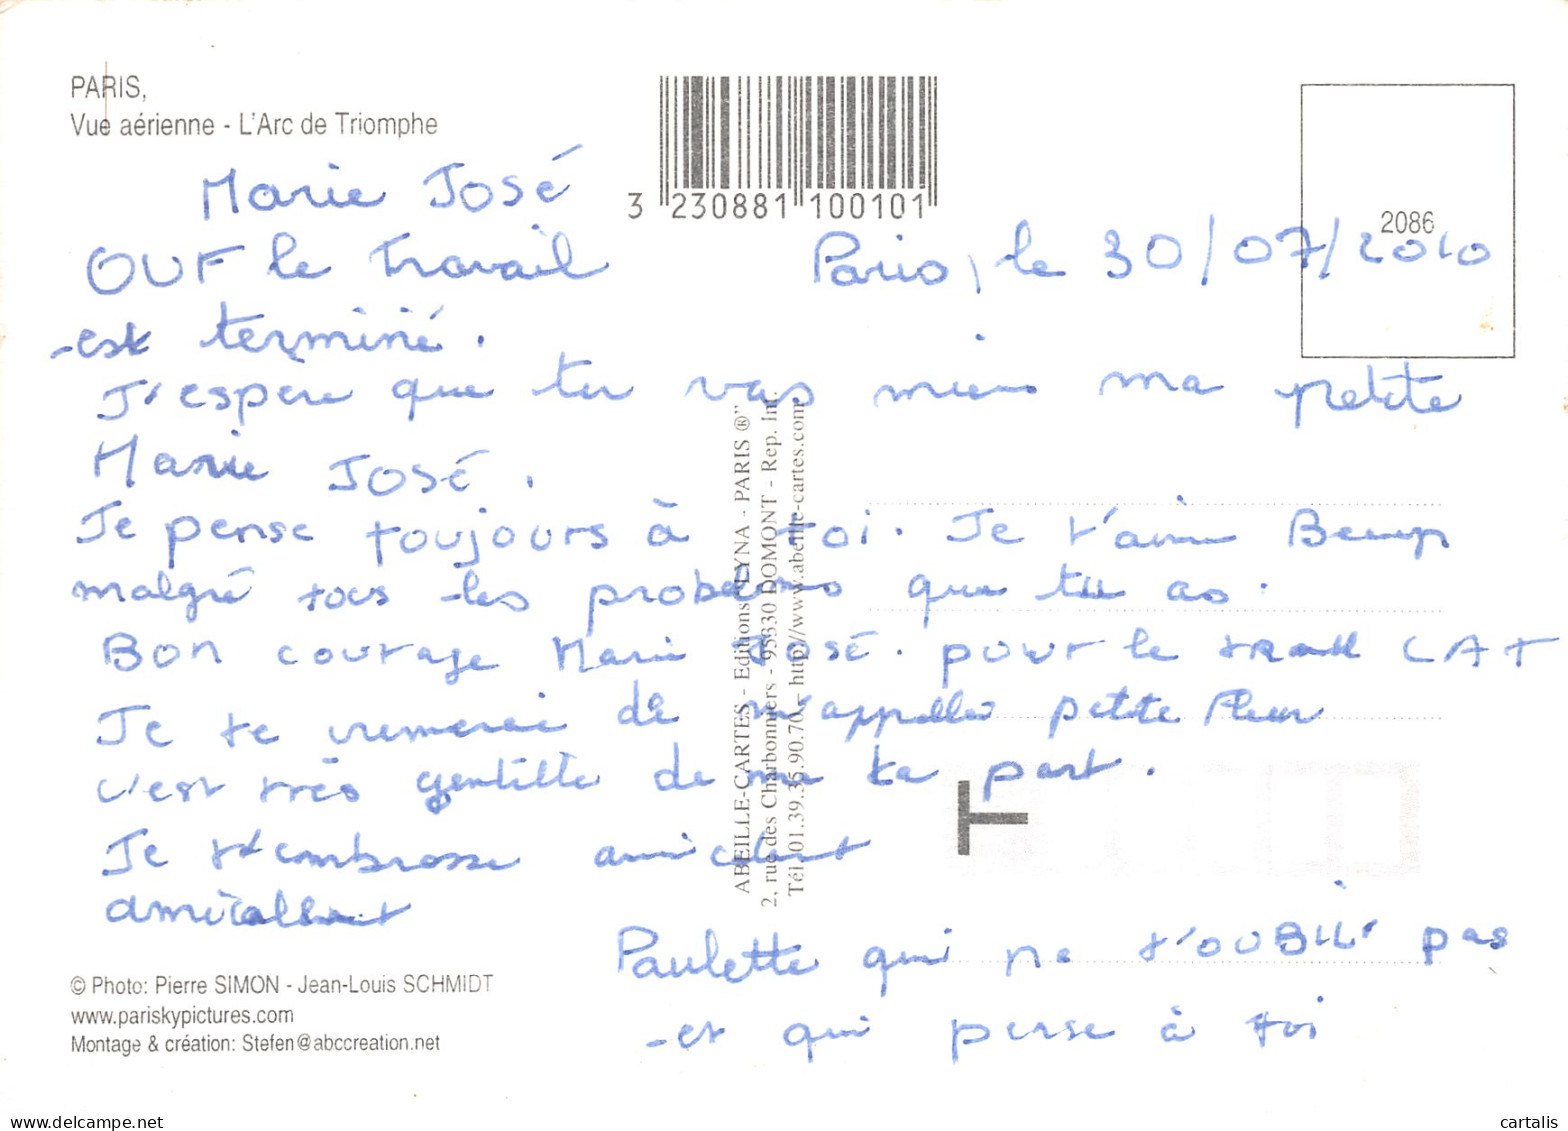 PARIS,
Vue aérienne - L'Arc de Triomphe
3 230881 100101
2086
Marie José
Paris, le 30/07/2010
OUF le travail
est terminé.
J'espère que tu vas mieu ma petite
Marie José.
Je pense toujours à toi. Je t'aime Beaup
malgré tous les problèmes que tu as.
Bon courage Marie José. pour le CAT
Je te remerci de m'appeller petite fleur
c'est très gentille de ma ta part.
Je t'embrasse
Paulette qui ne t'OUBILI pas
et qui pense à toi
ABEILLE-CARTES - Editions "LYNA - PARIS ®"
2, rue des Charbonniers - 95330 DOMONT - Rep. Int.
Tél. 01.39.35.90.70 - http://www.abeille-cartes.com
T
© Photo: Pierre SIMON - Jean-Louis SCHMIDT
www.pariskypictures.com
Montage & création: Stefen@abccreation.net
www.delcampe.net
cartalis